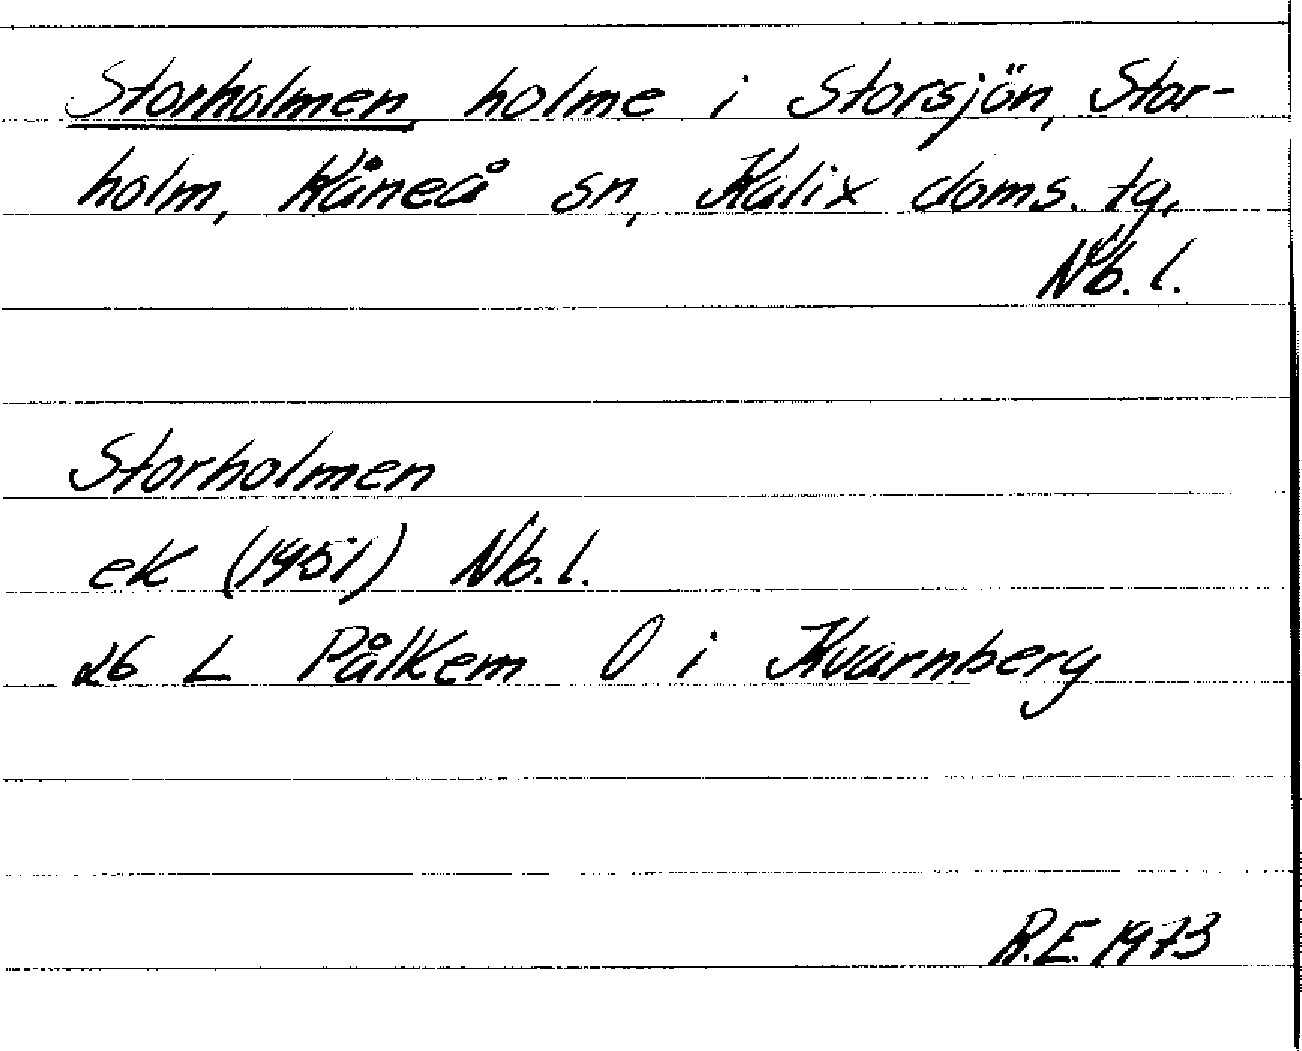 Storholmen, holme i Storsjön, Stor-
holm, Råneå sn, Kalix doms. tg,
Nb. l.
Storholmen
ek (1951) Nb. l.
26 L Pålkem O i Kvarnberg
R.E. 1973